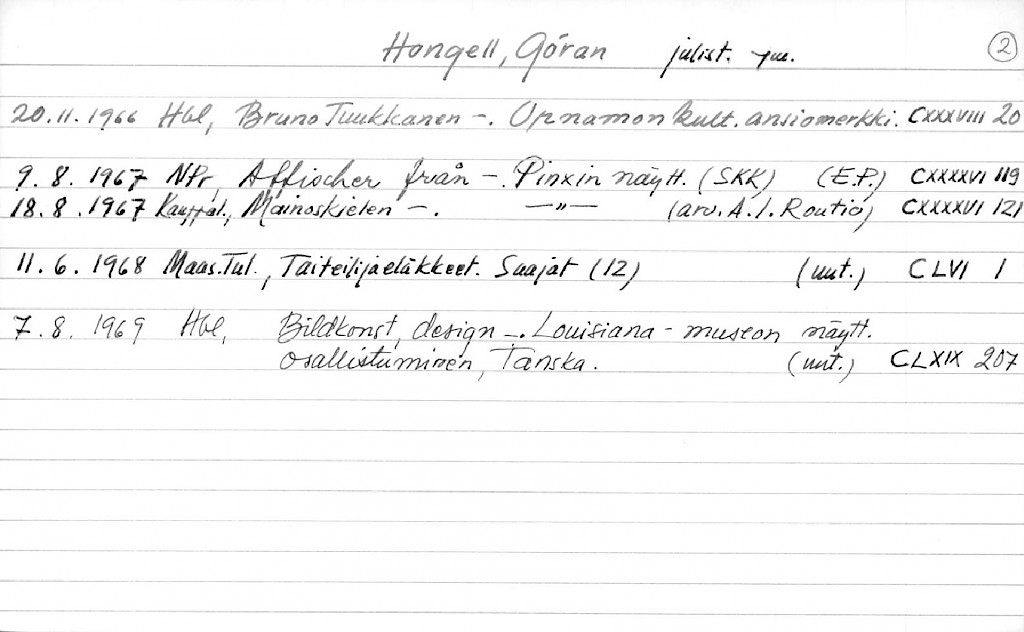 Hongell, Göran julist. ym. 2
20.11.1966 Hbl, Bruno Tuukkanen –. Opnamon kult. ansiomerkki. CXXXVIII 20
9.8.1967 NPr, Affischer från –. Pinxin näytt. (SKK) (E.P.) CXXXXVI 119
18.8.1967 Kauppal., Mainoskielen –. —"— (arv. A.I. Routio) CXXXXVI 121
11.6.1968 Maas.Tul., Taiteilijaeläkkeet. Saajat (12) (uut.) CLVI 1
7.8.1969 Hbl, Bildkonst, design –. Louisiana-museon näytt.
osallistuminen, Tanska. (uut.) CLXIX 207